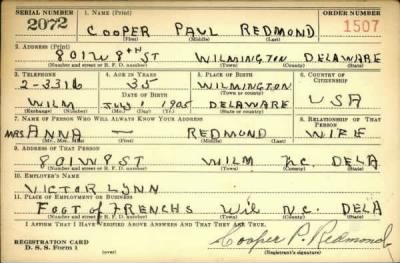 SERIAL NUMBER 1. NAME (Print) ORDER NUMBER
2072 COOPER PAUL REDMOND 1507
(First) (Middle) (Last)
2. ADDRESS (Print)
801 W 8TH ST WILMINGTON DELAWARE
(Number and street or R. F. D. number) (Town) (County) (State)
3. TELEPHONE 4. AGE IN YEARS 5. PLACE OF BIRTH 6. COUNTRY OF CITIZENSHIP
2-3316 35 WILMINGTON
DATE OF BIRTH (Town or county)
WILM JULY 1 1905 DELAWARE USA
(Exchange) (Number) (Mo.) (Day) (Yr.) (State or country)
7. NAME OF PERSON WHO WILL ALWAYS KNOW YOUR ADDRESS 8. RELATIONSHIP OF THAT PERSON
MRS ANNA — REDMOND WIFE
(Mr., Mrs., Miss) (First) (Middle) (Last)
9. ADDRESS OF THAT PERSON
801 W 8 ST WILM N.C. DELA
(Number and street or R. F. D. number) (Town) (County) (State)
10. EMPLOYER'S NAME
VICTOR LYNN
11. PLACE OF EMPLOYMENT OR BUSINESS
FOOT of FRENCHS Wil N.C. DELA
(Number and street or R. F. D. number) (Town) (County) (State)
I AFFIRM THAT I HAVE VERIFIED ABOVE ANSWERS AND THAT THEY ARE TRUE.
REGISTRATION CARD
D. S. S. Form 1 Cooper P. Redmond
(over) (Registrant's signature)